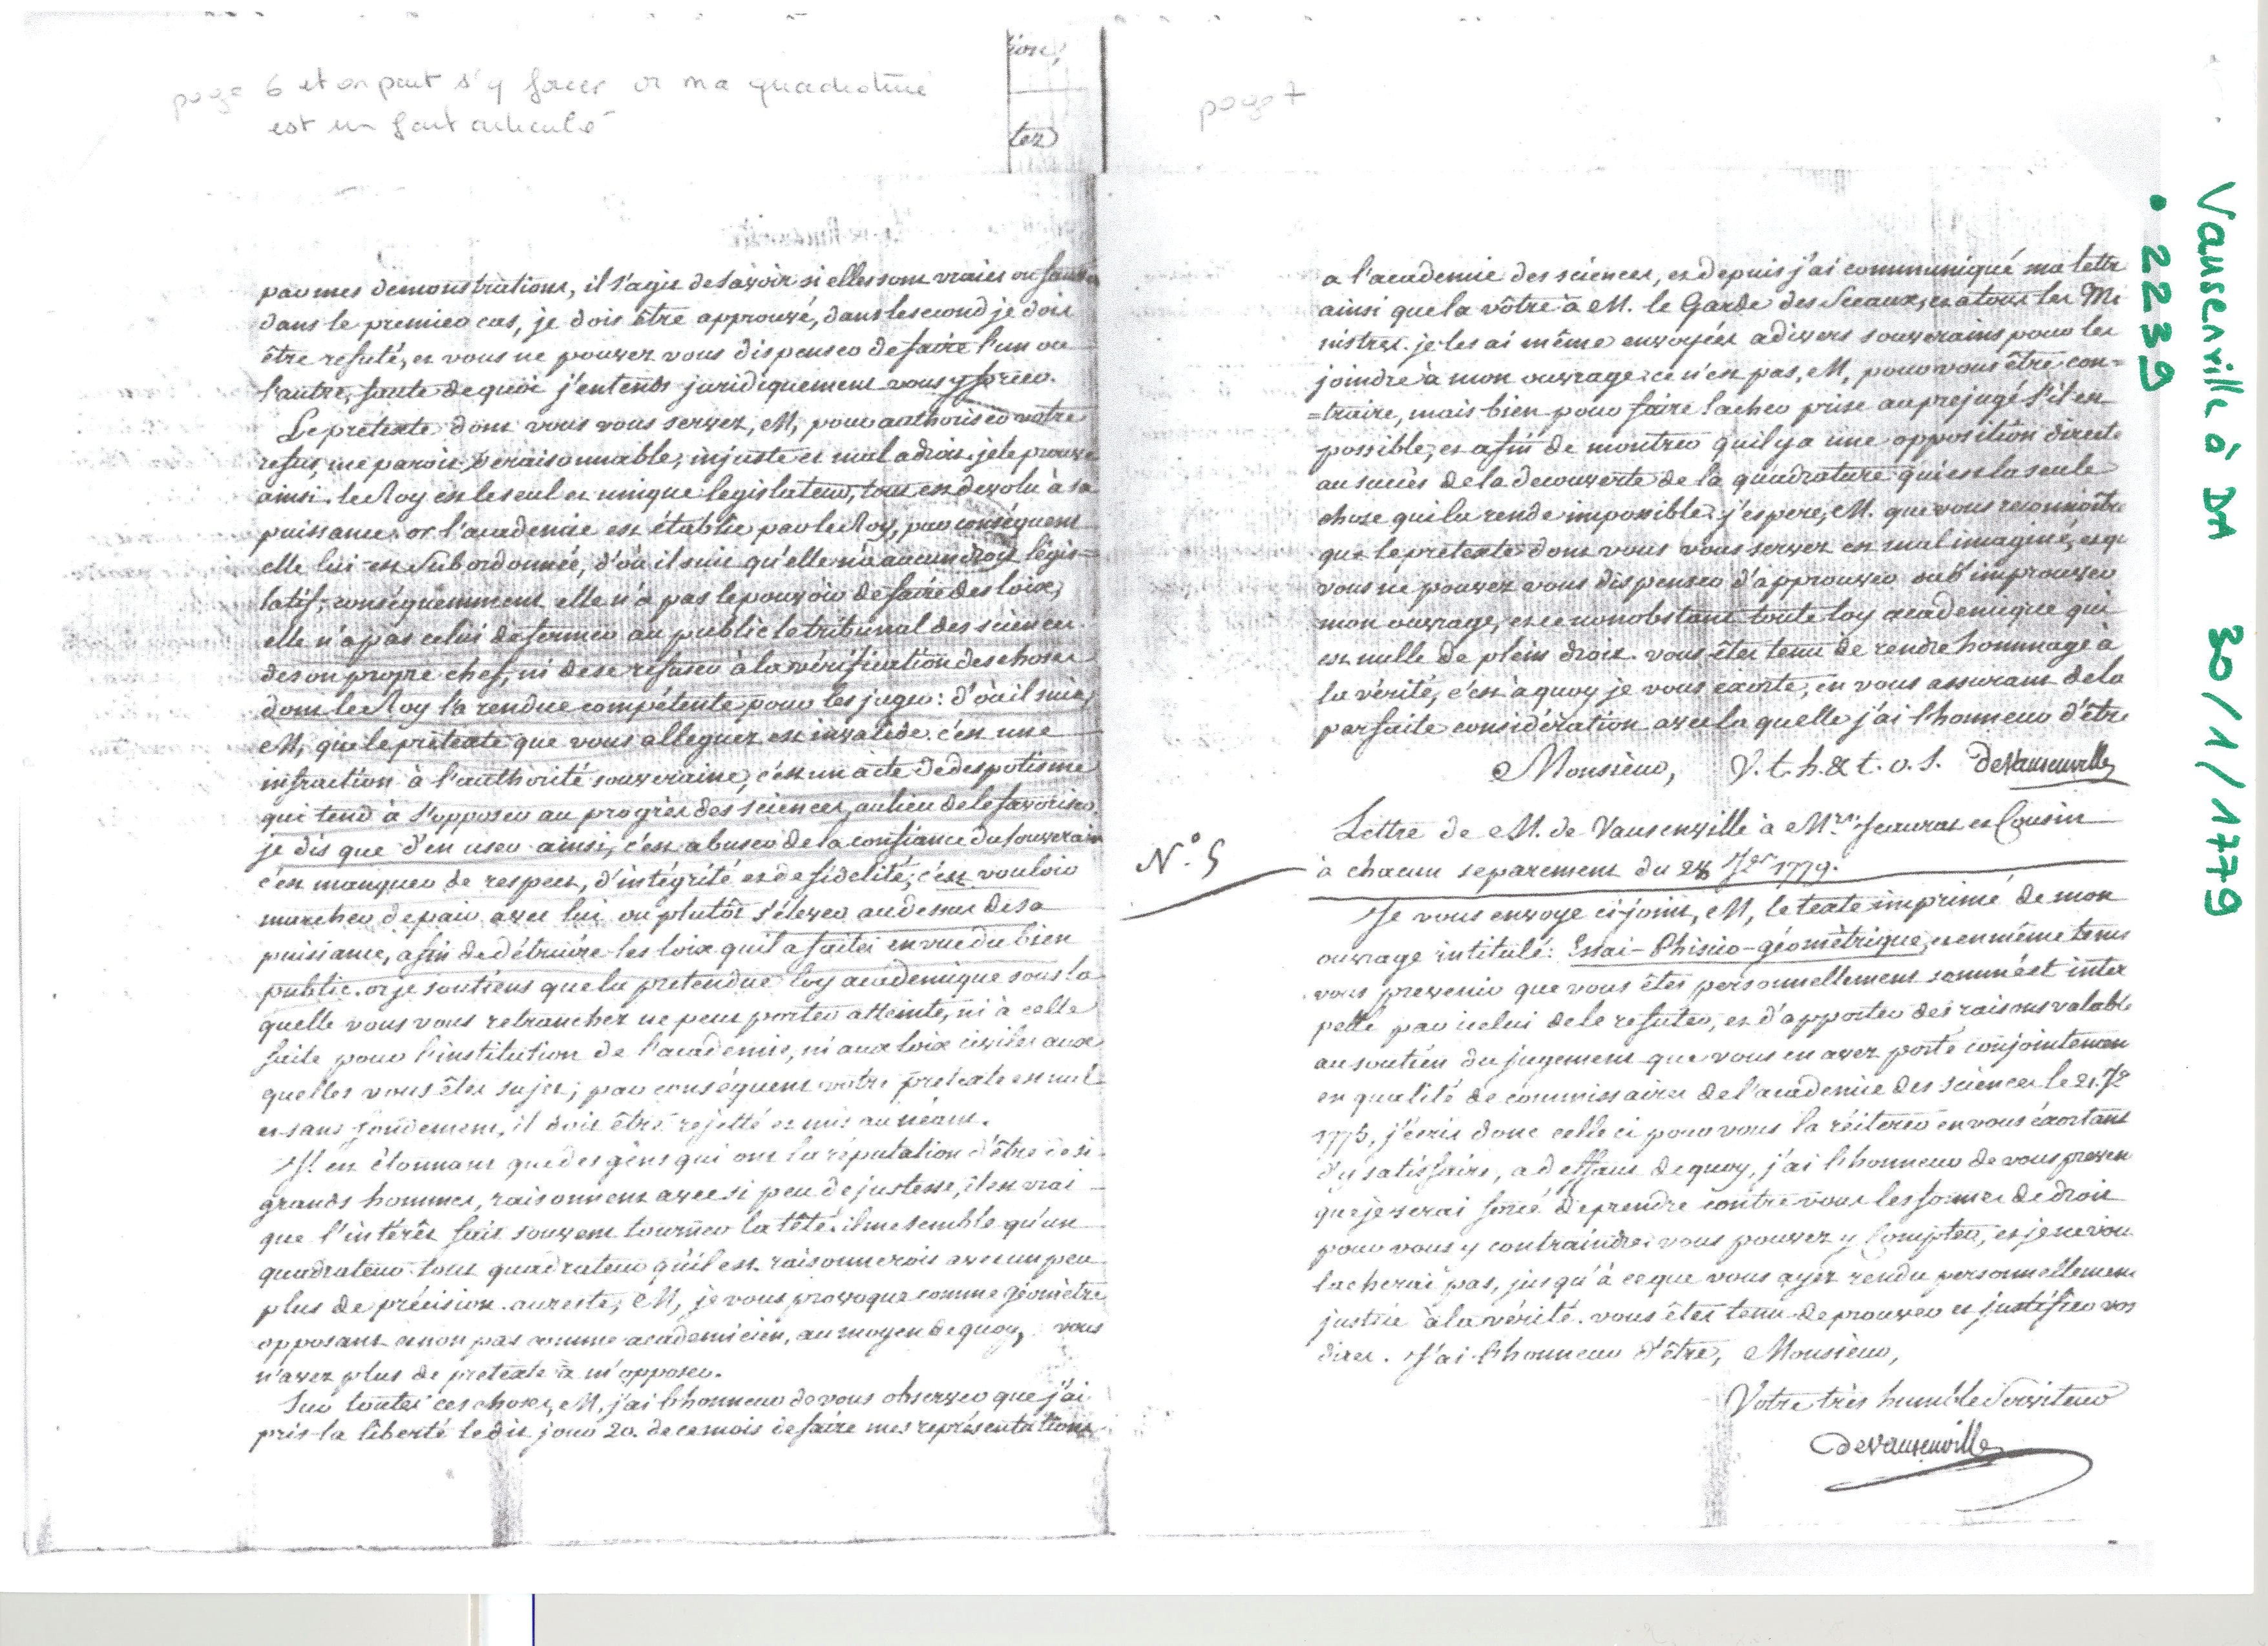 page 6 et on peut s'y forcer or ma quadrature
est un fait articulé
ion,
ter
par mes demonstrations, il s'agit de savoir si elles sont vraies ou fausses
dans le premier cas, je dois être approuvé, dans le second je dois
être refuté, et vous ne pouvez vous dispenser de faire l'un ou
l'autre, faute de quoi j'entends juridiquement vous y forcer.
Le prétexte dont vous vous servez, M, pour authoriser votre
refus, me paroit deraisonnable, injuste et mal adroit. je le prouve
ainsi. le Roy est le seul et unique legislateur, tout est devolu à sa
puissance. or l'academie est établie par le Roy, par conséquent
elle lui est subordonnée, d'où il suit qu'elle n'a aucun droit légis=
latif; conséquemment elle n'a pas le pouvoir de faire des loix,
elle n'a pas celui de fermer au public le tribunal des sciences
de son propre chef, ni de se refuser à la vérification des choses
dont le Roy l'a rendue compétente pour les juger: d'où il suit,
M, que le prétexte que vous alleguez est invalide. c'est une
infraction à l'authorité souveraine, c'est un acte de despotisme
qui tend à s'opposer au progrès des sciences, au lieu de le favoriser.
je dis que d'en user ainsi, c'est abuser de la confiance du souverain
c'est manquer de respect, d'intégrité et de fidelité; c'est vouloir
marcher de pair avec lui ou plutôt s'élever au dessus de sa
puissance, afin de détruire les loix qu'il a faites en vue du bien
public. or je soutiens que la pretendue loy académique sous la
quelle vous vous retranchez ne peut porter atteinte, ni à celle
faite pour l'institution de l'academie, ni aux loix civiles aux
quelles vous êtes sujet; par conséquent votre pretexte est nul
et sans fondement, il doit être rejetté et mis au néant.
Il est étonnant que des gens qui ont la réputation d'être de si
grands hommes, raisonnent avec si peu de justesse, il est vrai
que l'intérêt fait souvent tourner la tête. il me semble qu'un
quadrateur tout quadrateur qu'il est raisonnerois avec un peu
plus de précision. au reste, M, je vous provoque comme géomètre
opposant et non pas comme academicien, au moyen de quoy, vous
n'avez plus de pretexte à m'opposer.
Sur toutes ces choses, M, j'ai l'honneur de vous observer que j'ai
pris la liberté ledit jour 20. de ce mois de faire mes représentations
page 7
a l'academie des sciences, et depuis j'ai communiqué ma lettre
ainsi que la vôtre à M. le Garde des Sceaux, et a tous les Mi
nistres. je les ai même envoyées a divers souverains pour les
joindre à mon ouvrage. ce n'est pas, M, pour vous être con=
=traire, mais bien pour faire lacher prise au prejugé s'il est
possible, et afin de montrer qu'il y a une opposition directe
au succès de la decouverte de la quadrature qui est la seule
chose qui la rende impossible. j'espere, M. que vous reconnoitre
que le pretexte dont vous vous servez est mal imaginé, et qu
vous ne pouvez vous dispenser d'approuver ou d'improuver
mon ouvrage, et ce nonobstant toute loy academique qui
est nulle de plein droit. vous êtes tenu de rendre hommage à
la vérité, c'est à quoy je vous exorte, en vous assurant de la
parfaite considération avec la quelle j'ai l'honneur d'être
Monsieur, V. t. h. & t. o. S. deVausenville
Lettre de M. de Vausenville à Mrs. Jeaurat et Cousin
N.° 5
à chacun separement du 28 Jer 1779.
Je vous envoye ci-joint, M, le texte imprimé de mon
ouvrage intitulé: Essai-Phisico-géométrique, et en même tems
vous prevenir que vous êtes personnellement sommé et inter
pellé par icelui de le refuter, et d'apporter des raisons valable
au soutien du jugement que vous en avez porté conjointemen
en qualité de commissaires de l'academie des sciences le 21. 7e
1775, j'écris donc celle ci pour vous la réiterer en vous exortant
d'y satisfaire, a deffaut de quoy, j'ai l'honneur de vous preven
que je serai forcé de prendre contre vous les formes de droit
pour vous y contraindre. vous pouvez y compter, et je ne vou
lacherai pas, jusqu'à ce que vous ayez rendu personnellement
justice à la vérité. vous êtes tenu de prouver et justifier vos
dires. J'ai l'honneur d'être, Monsieur,
Votre très humble Serviteur
deVausenville
Vausenville à DA 30/1/1779
• 2239